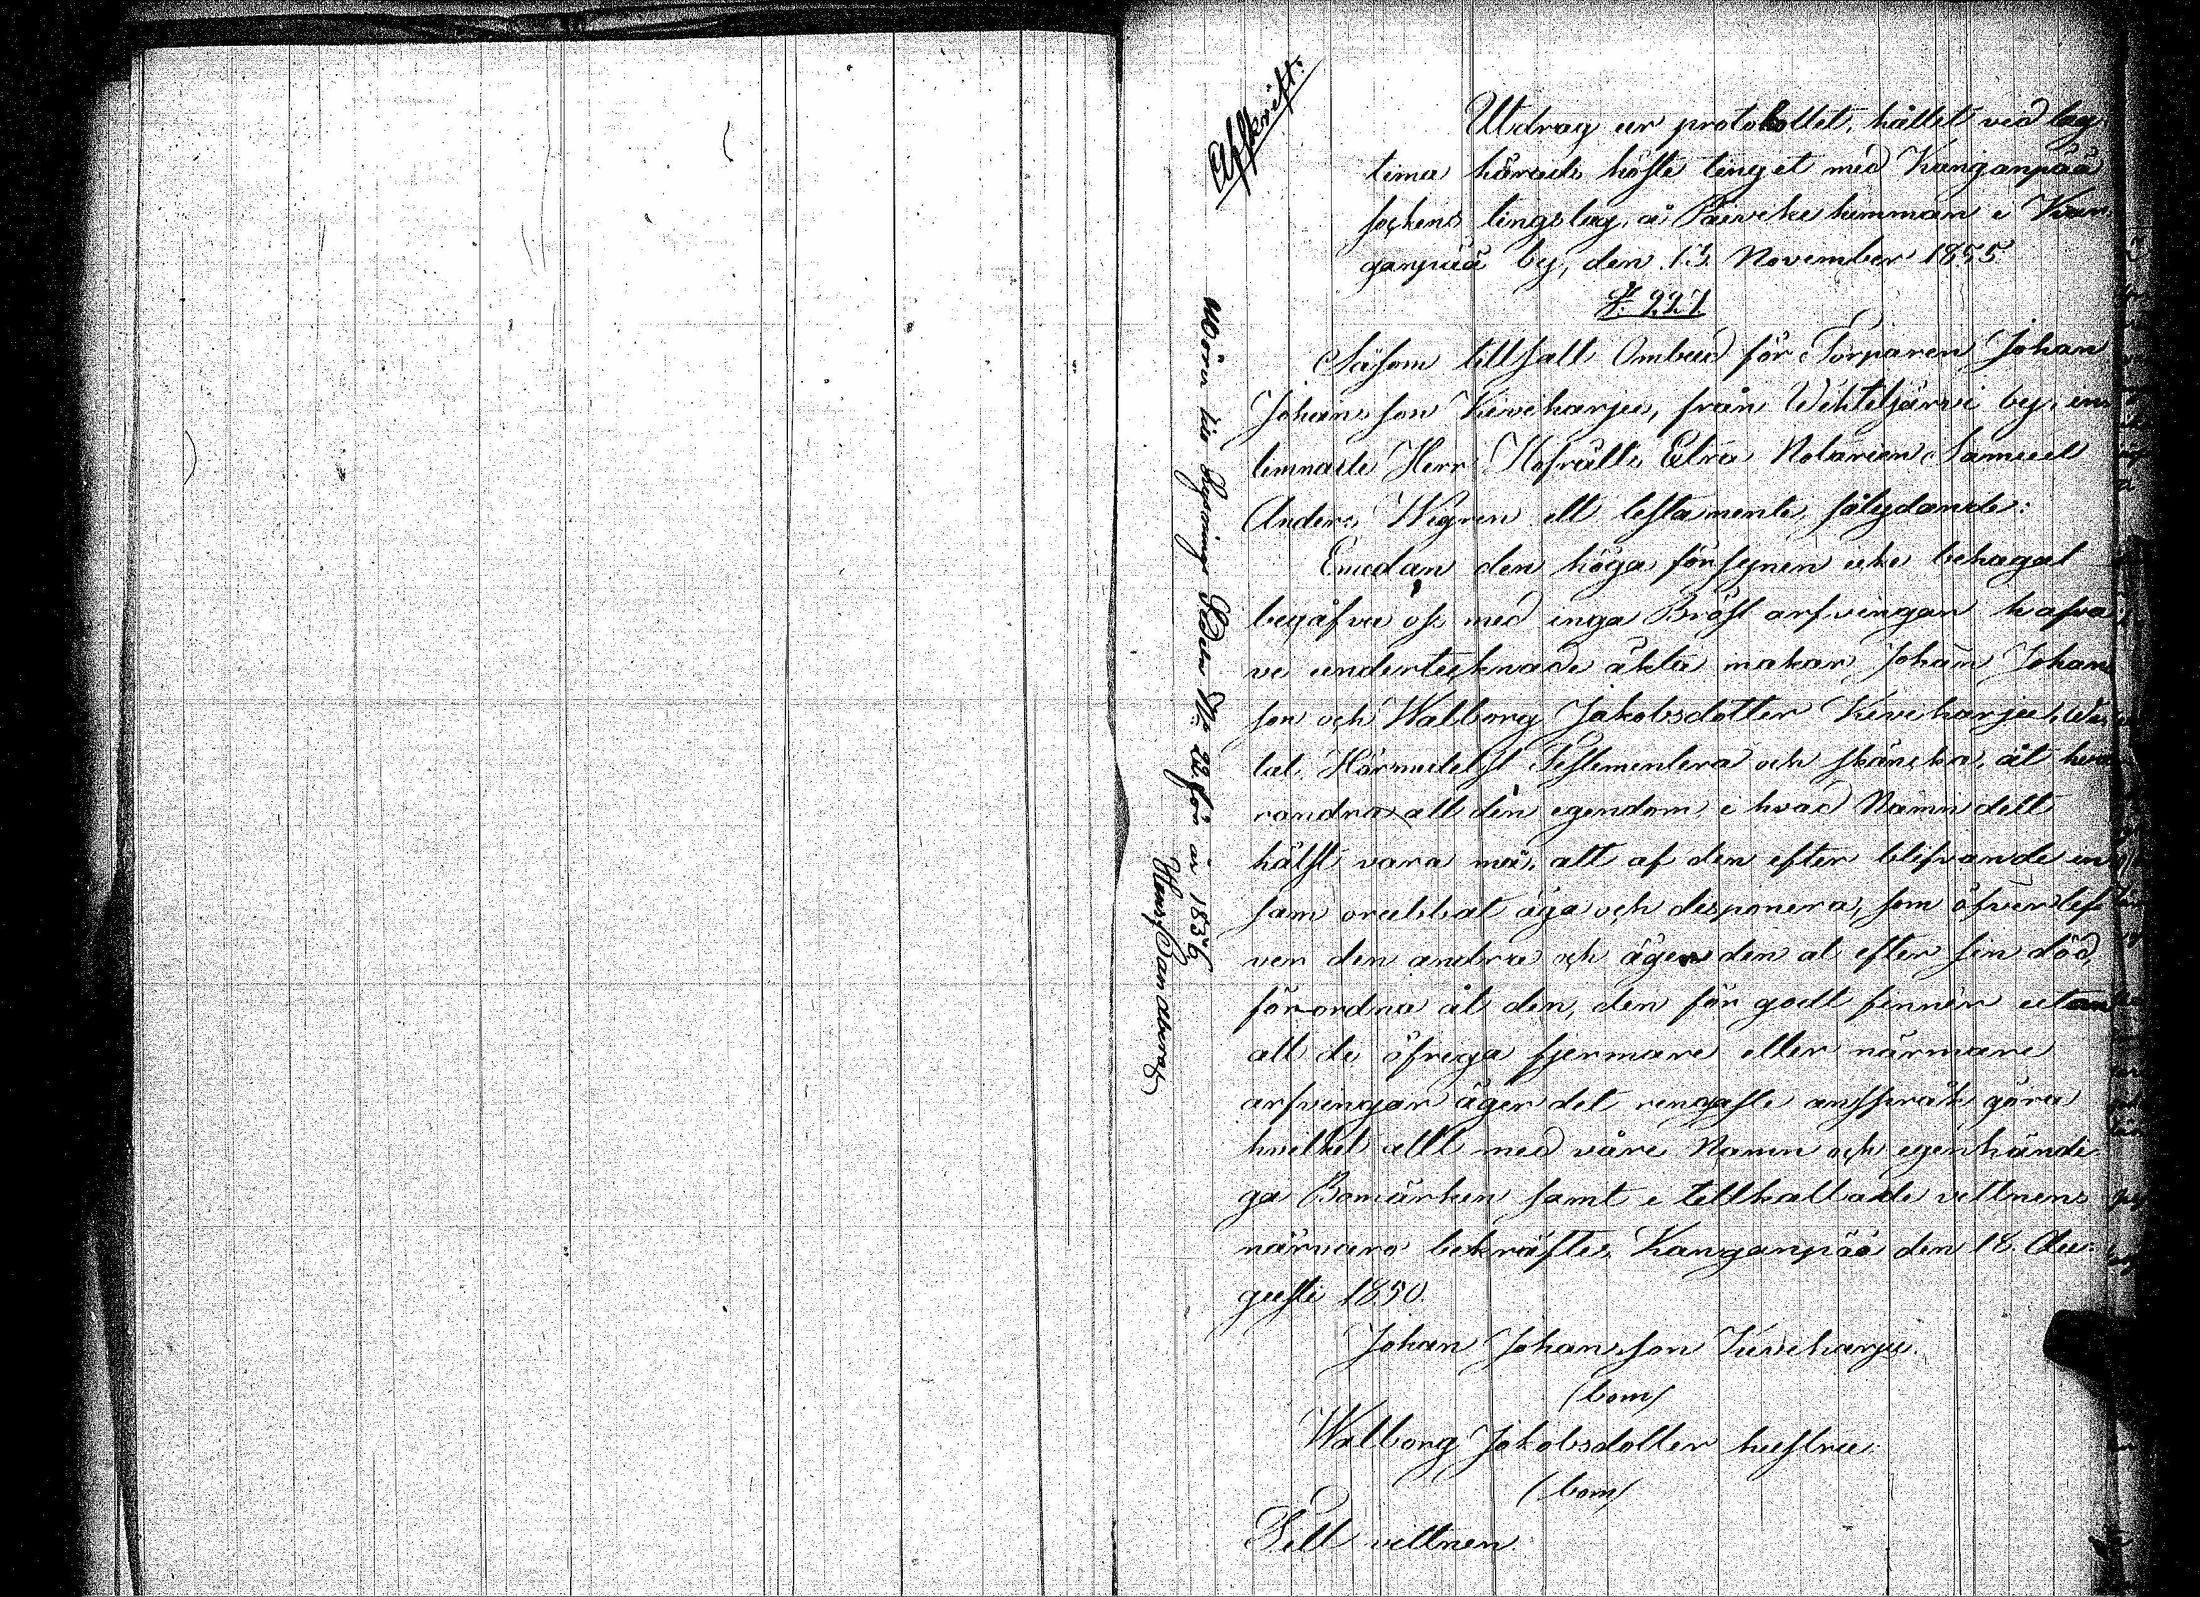 Afskrift:
Utdrag ur protokollet, hållet vid lag
tima härads höste tinget med Kanganpää
sockens tingslag, å Päivike hemman i Kan
ganpää by, den 13 November 1855
§ 227
Såsom tillsatt Ombud för Torparen Johan
Johans son Kiviharju, från Wihteljärvi by, in
lemnade Herr Hofrätts Extra Notarien Samuel
Anders Wigren ett testamente, sålydande:
Emedan den höga försynen icke behagat
begåfva oss med inga Bröst arfvingar hafva
vi undertecknade äkta makar, Johan Johans
son och Walborg Jakobsdotter Kiviharju,
tat Härmedelst Testementera och skäncka, åt hva
randra all den egendom, i hvad Namn dett
hälst vara må, att af den efter blifvande en
sam orubbat äga och disponera, som öfverlef
ver den andra och äger den at efter sin död,
förordna åt den, den för godt finner utan
att de öfriga fjermare eller närmare
arfvingar äger det ringaste anspråk göra
hvilket allt med våre Namn och egenhändi
ga Bomärken samt i tillkallade vittnens
närvaro bekräftes, Kanganpää den 18. Au-
gusti 1850.
Johan Johans son Kiviharju.
(bom)
Walborg Jakobsdotter hustru
(bom)
Till vittnen.
1836